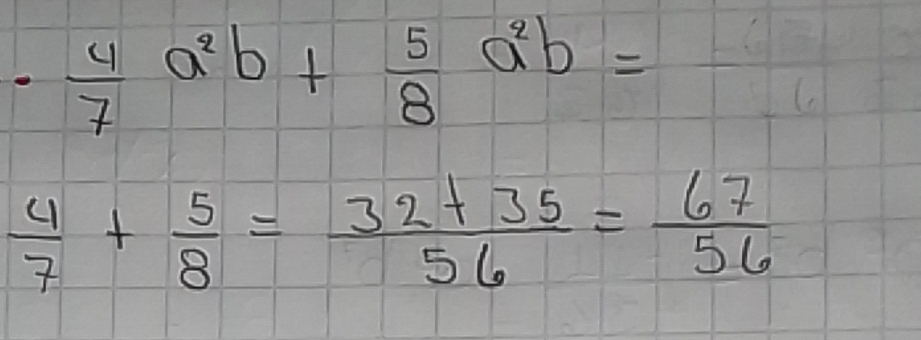 · 4/7 a²b + 5/8 a²b =
4/7 + 5/8 = 32+35/56 = 67/56